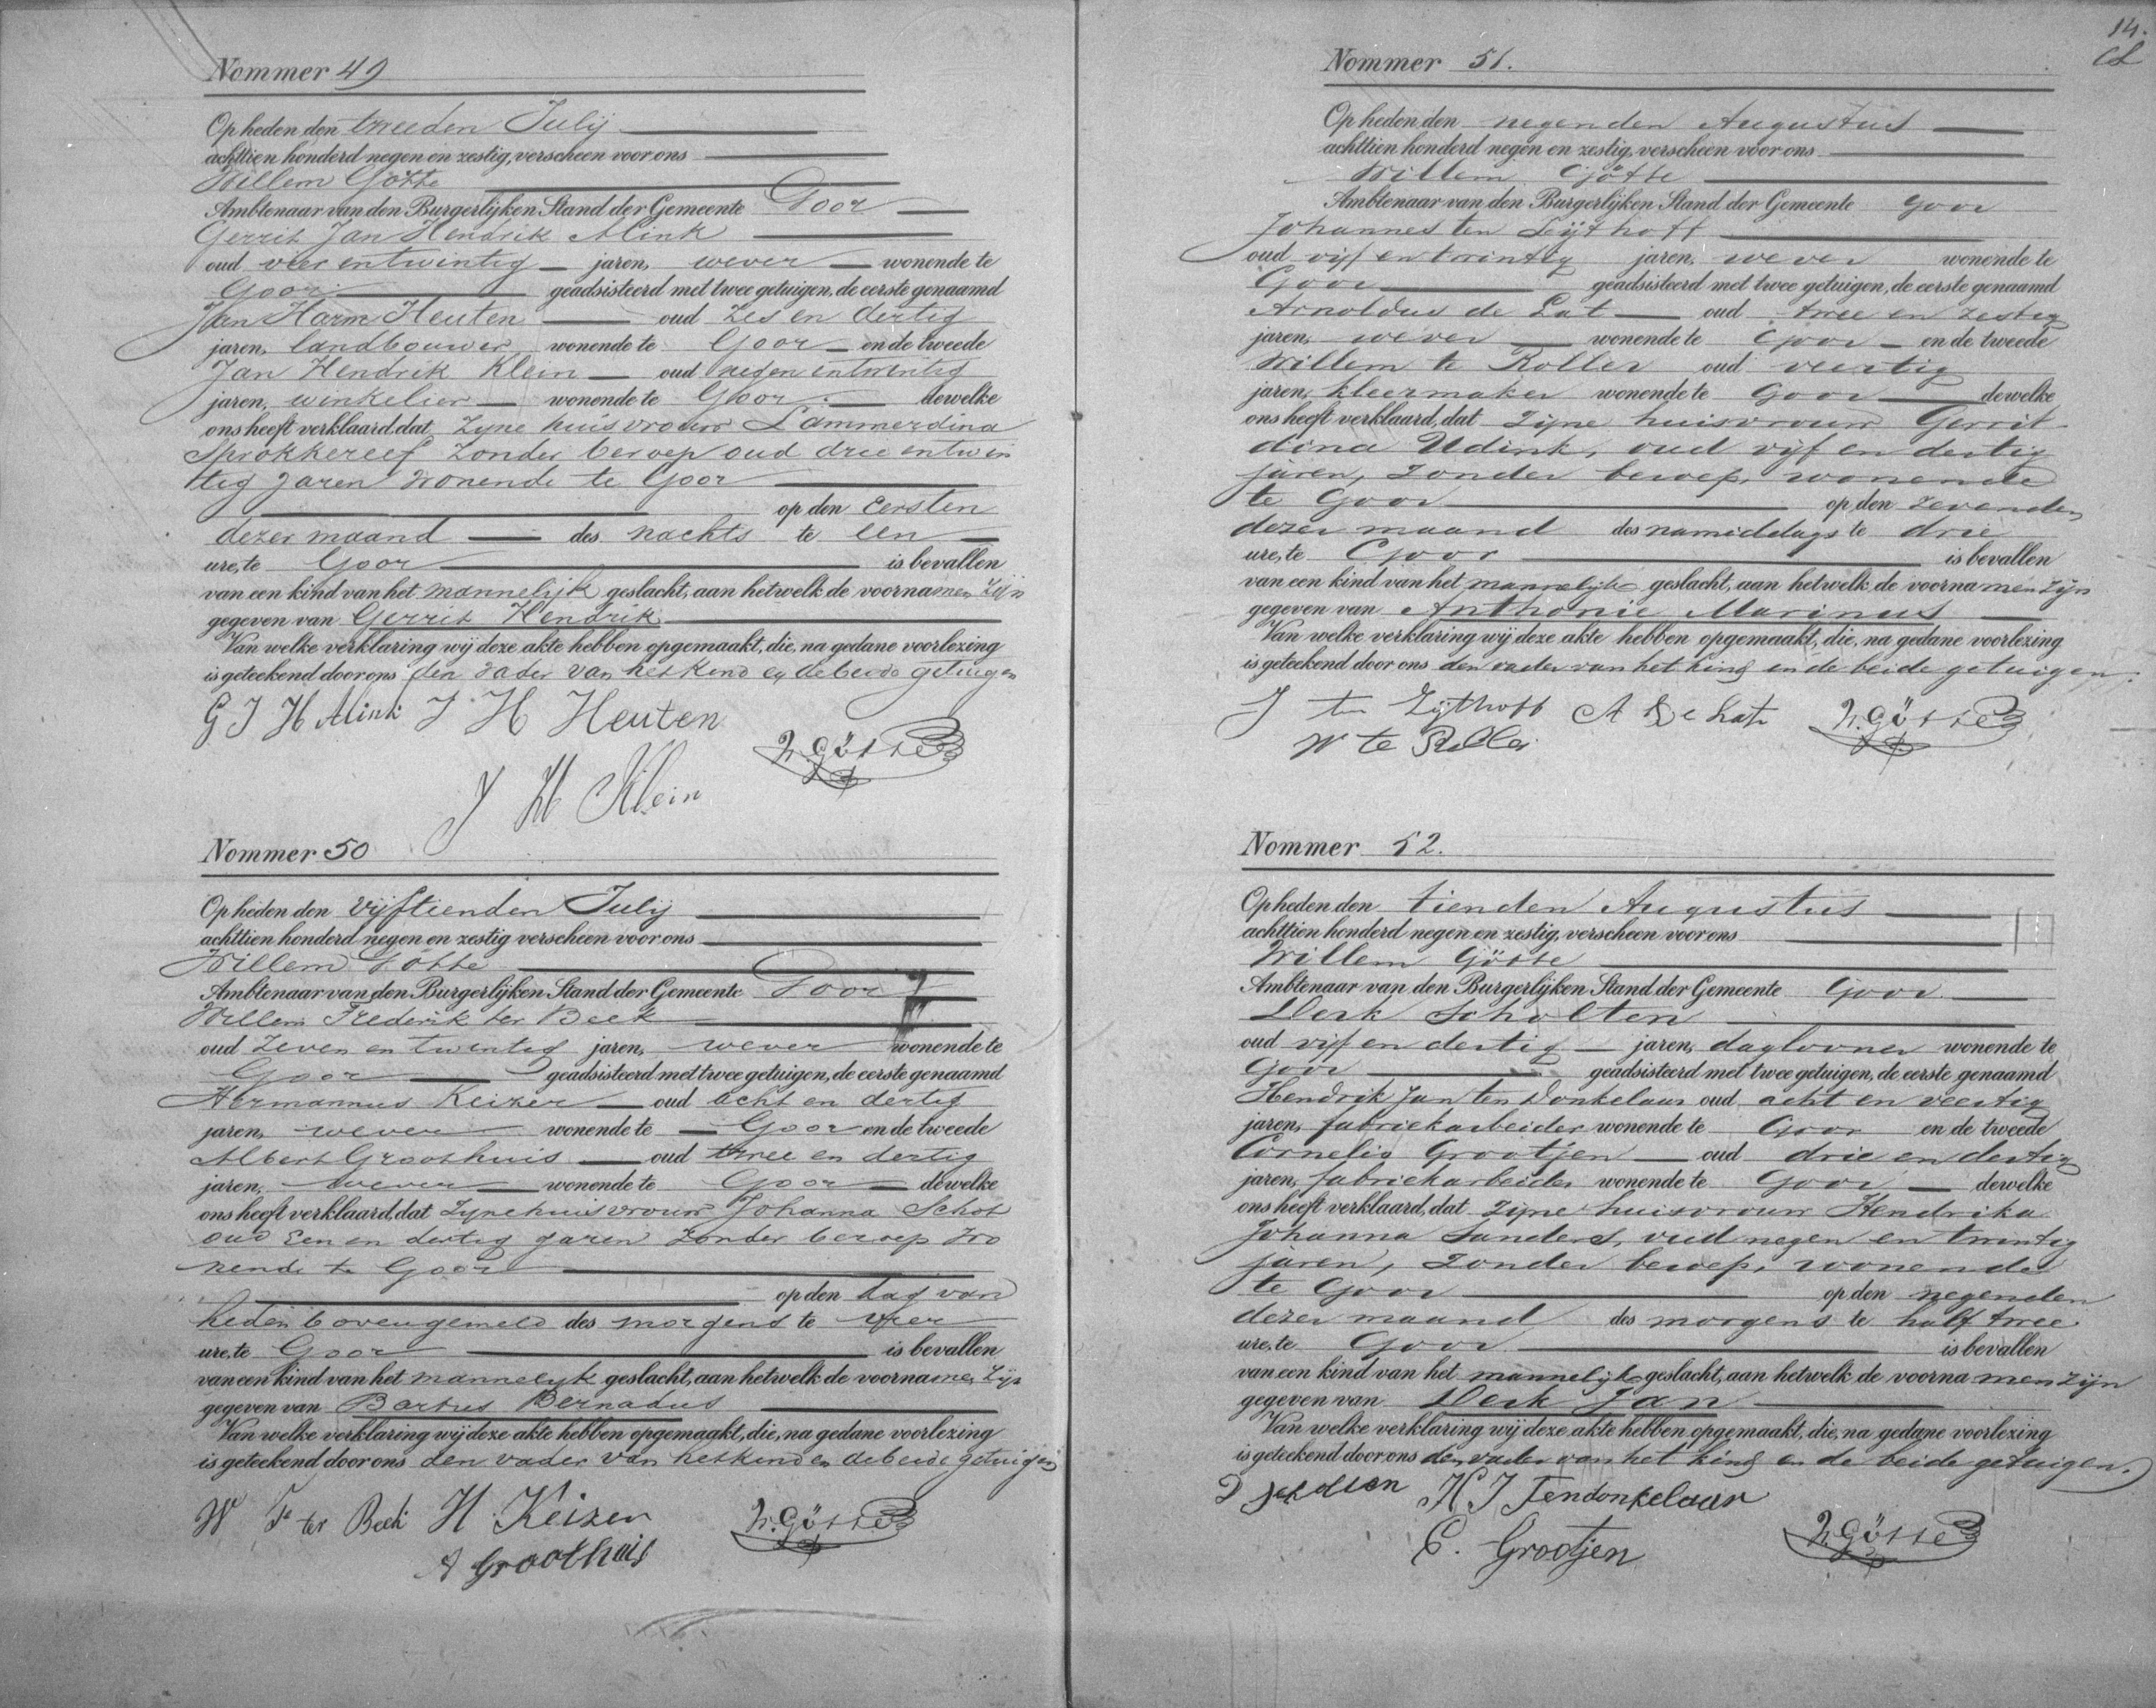 Nommer 49
Op heden den tweeden Julij
achttien honderd negen en zestig, verscheen voor ons
Willem Götte
Ambtenaar van den Burgerlijken Stand der Gemeente Goor
Gerrit Jan Hendrik Alink
oud vier en twintig jaren, wever wonende te
Goor geadsisteerd met twee getuigen, de eerste genaamd
Jan Harm Heuten oud zes en dertig
jaren, landbouwer wonende te Goor en de tweede
Jan Hendrik Klein oud negen en twintig
jaren, winkelier wonende te Goor dewelke
ons heeft verklaard, dat zyne huisvrouw Lammerdina
Sprokkereef zonder beroep oud drie en twin
tig jaren wonende te Goor
op den eersten
dezer maand des nachts te een
ure, te Goor is bevallen
van een kind van het mannelijk geslacht, aan hetwelk de voornamen zijn
gegeven van Gerrit Hendrik
Van welke verklaring wij deze akte hebben opgemaakt, die, na gedane voorlezing
is geteekend door ons den vader van het kind en de beide getuigen
G J H Alink J H Heuten
W. Götte
J H Klein
Nommer 50
Op heden den vijftienden Julij
achttien honderd negen en zestig verscheen voor ons
Willem Götte
Ambtenaar van den Burgerlijken Stand der Gemeente Goor
Willem Frederik ter Beek
oud zeven en twintig jaren, wever wonende te
Goor geadsisteerd met twee getuigen, de eerste genaamd
Hermannus Keizer oud acht en dertig
jaren, wever wonende te Goor en de tweede
Albert Groothuis oud twee en dertig
jaren, wever wonende te Goor dewelke
ons heeft verklaard, dat zyne huisvrouw Johanna Schot
oud een en dertig jaren zonder beroep wo
nende te Goor
op den dag van
heden bovengemeld des morgens te vier
ure, te Goor is bevallen
van een kind van het mannelyk geslacht, aan hetwelk de voornamen zijn
gegeven van Bartus Bernadus
Van welke verklaring wij deze akte hebben opgemaakt, die, na gedane voorlezing
is geteekend door ons den vader van het kind en de beide getuigen
W F ter Beek H Keizer
W. Götte
A Groothuis
14.
Nommer 51.
Op heden den negenden Augustus
achttien honderd negen en zestig, verscheen voor ons
Willem Götte
Ambtenaar van den Burgerlijken Stand der Gemeente Goor
Johannes ten Seijthoff
oud vijf en twintig jaren, wever wonende te
Goor geadsisteerd met twee getuigen, de eerste genaamd
Arnoldus de Lat oud twee en zestig
jaren, wever wonende te Goor en de tweede
Willem te Roller oud veertig
jaren, kleermaker wonende te Goor dewelke
ons heeft verklaard, dat zijne huisvrouw Gerrit
dina Udink, oud vijf en dertig
jaren, zonder beroep, wonende
te Goor op den zevenden
dezer maand des namiddags te drie
ure, te Goor is bevallen
van een kind van het mannelijk geslacht, aan hetwelk de voornamen zijn
gegeven van Anthonie Marinus
Van welke verklaring wij deze akte hebben opgemaakt, die, na gedane voorlezing
is geteekend door ons den vader van het kind en de beide getuigen.
J te Zijthoff A de Lat W. Götte
W te Roller
Nommer 52.
Op heden den tienden Augustus
achttien honderd negen en zestig, verscheen voor ons
Willem Götte
Ambtenaar van den Burgerlijken Stand der Gemeente Goor
Derk Scholten
oud vijf en dertig jaren, daglooner wonende te
Goor geadsisteerd met twee getuigen, de eerste genaamd
Hendrik Jan ten Donkelaar oud acht en veertig
jaren, fabriekarbeider wonende te Goor en de tweede
Cornelis Grootjen oud drie en dertig
jaren, fabriekarbeider wonende te Goor dewelke
ons heeft verklaard, dat zijne huisvrouw Hendrika
Johanna Sanders, oud negen en twintig
jaren, zonder beroep, wonende
te Goor op den negenden
dezer maand des morgens te half twee
ure, te Goor is bevallen
van een kind van het mannelijk geslacht, aan hetwelk de voornamen zijn
gegeven van Derk Jan
Van welke verklaring wij deze akte hebben opgemaakt, die, na gedane voorlezing
is geteekend door ons den vader van het kind en de beide getuigen.
D Scholten H J Tendonkelaar
W. Götte
C. Grootjen